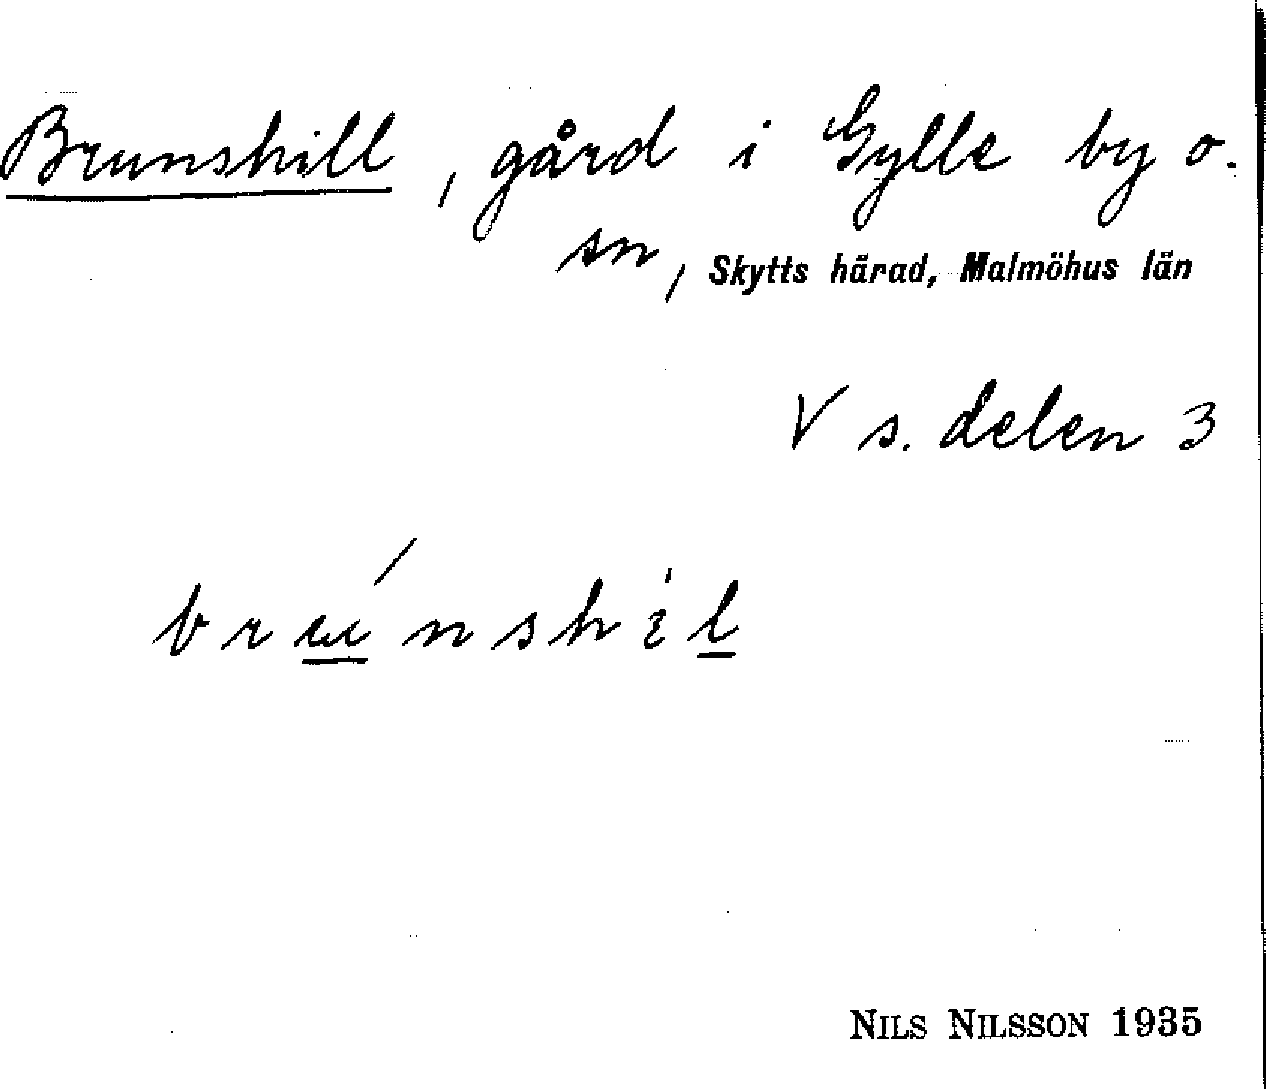 Brunshill, gård i Gylle by o.
sn, Skytts härad, Malmöhus län
V s. delen 3
NILS NILSSON 1935